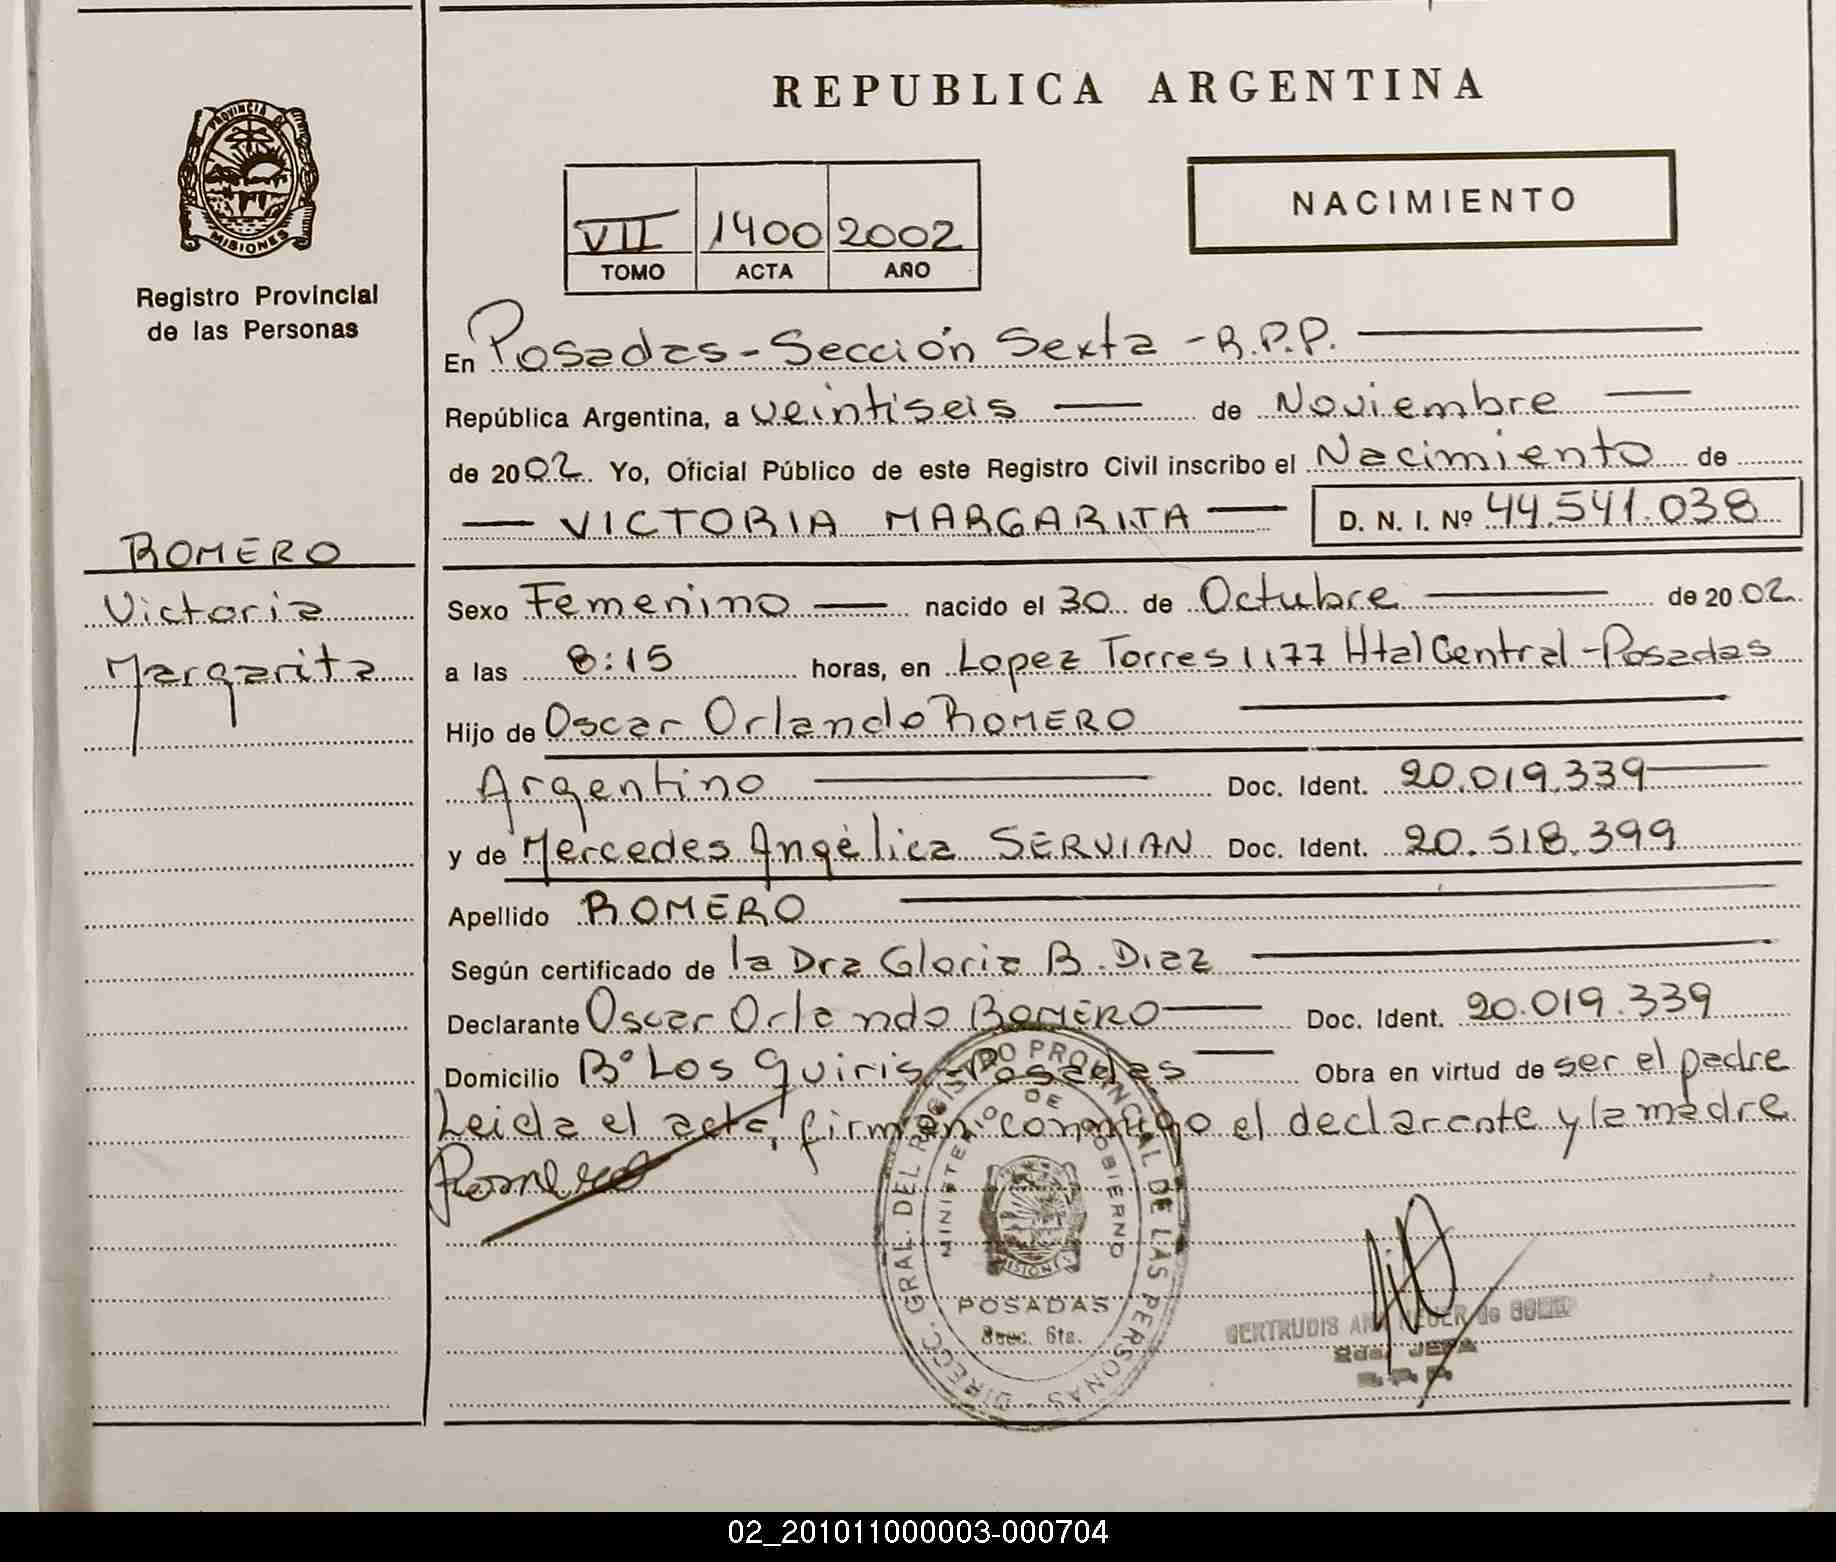 REPUBLICA ARGENTINA
PROVINCIA DE
MISIONES
Registro Provincial
de las Personas
NACIMIENTO
VII 1400 2002
TOMO ACTA AÑO
En Posadas - Sección Sexta - R.P.P.
República Argentina, a veintiseis de Noviembre
de 2002. Yo, Oficial Público de este Registro Civil inscribo el Nacimiento de
VICTORIA MARGARITA D. N. I. Nº 44.541.038
ROMERO
Victoria
Margarita
Sexo Femenino nacido el 30 de Octubre de 2002
a las 8:15 horas, en Lopez Torres 1177 Htal Central - Posadas
Hijo de Oscar Orlando ROMERO
Argentino Doc. Ident. 20.019.339
y de Mercedes Angélica SERVIAN Doc. Ident. 20.518.399
Apellido ROMERO
Según certificado de la Dra Gloria B. Diaz
Declarante Oscar Orlando ROMERO Doc. Ident. 20.019.339
Domicilio Bº Los Quiris - Posadas Obra en virtud de ser el padre
Leida el acta, firman conmigo el declarante y la madre
Romero
DIRECC. GRAL. DEL REGISTRO PROVINCIAL DE LAS PERSONAS
MINISTERIO DE GOBIERNO
MISIONES
POSADAS
Secc. 6ta.
GERTRUDIS de
JEFA
R.P.P.
02_201011000003-000704